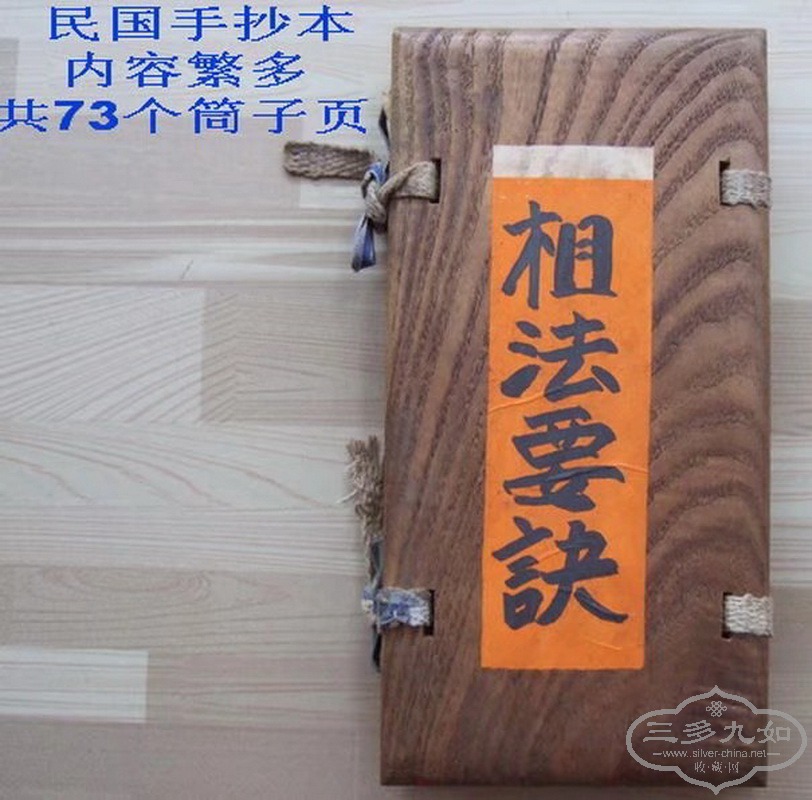 民国手抄本
内容繁多
共73个筒子页
相法要訣
三多九如
www.silver-china.net
收·藏·网